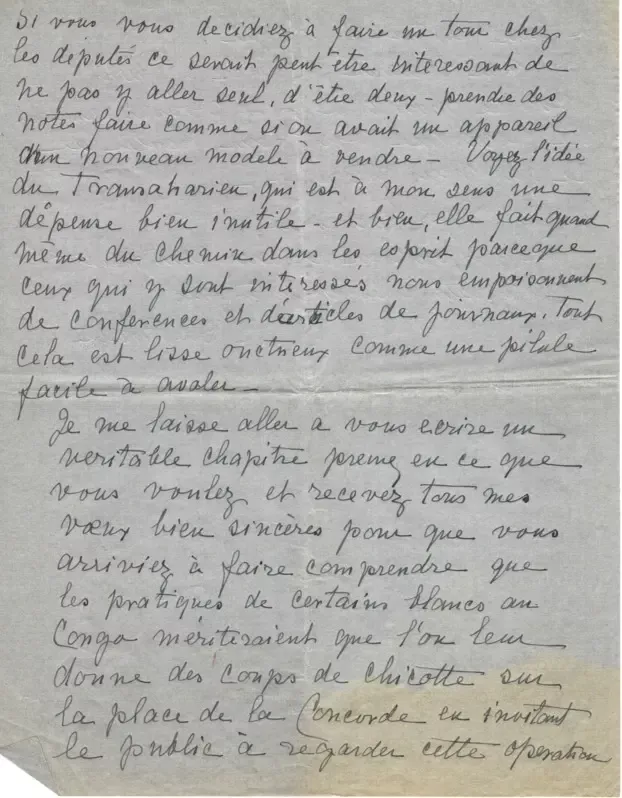 Si vous vous decidiez à faire un tour chez
les députés ce serait peut être interessant de
ne pas y aller seul, d'être deux - prendre des
notes faire comme si on avait un appareil
d'un nouveau modele à vendre - Voyez l'idée
du Transaharien, qui est à mon sens une
dépense bien inutile - et bien, elle fait quand
même du chemin dans les esprit parceque
ceux qui y sont intéressés nous empoisonnent
de conferences et d'articles de journaux. Tout
cela est lisse onctueux comme une pilule
facile à avaler -
Je me laisse aller a vous ecrire un
veritable chapitre prenez en ce que
vous voulez et recevez tous mes
vœux bien sincères pour que vous
arriviez à faire comprendre que
les pratiques de certains blancs au
Congo mériteraient que l'on leur
donne des coups de chicotte sur
la place de la Concorde en invitant
le public à regarder cette operation